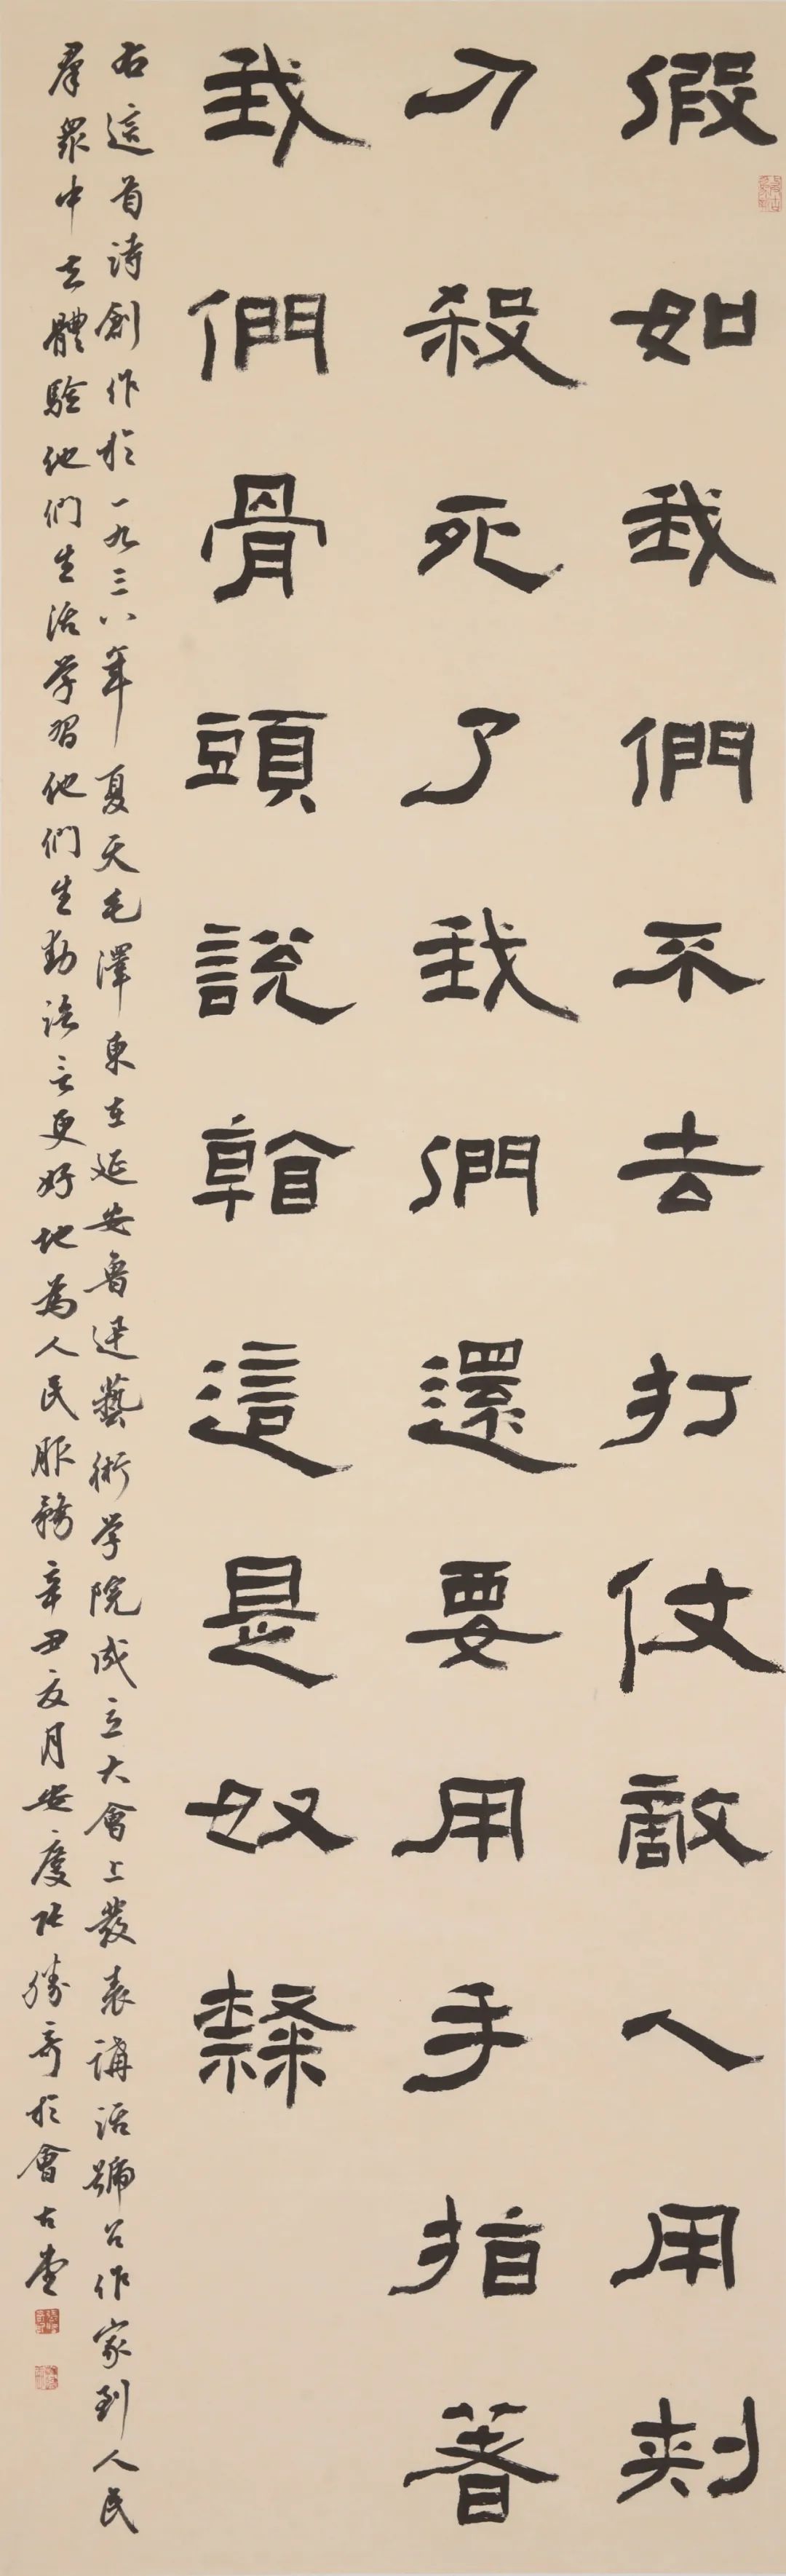 假如我們不去打仗敵人用刺
刀殺死了我們還要用手指着
我們骨頭說幹這是奴隸
右這首詩創作於一九三八年夏天毛澤東在延安魯迅藝術学院成立大會上發表講話號召作家到人民
羣眾中去體驗他们生活学習他们生動語言更好地為人民服務辛丑夏月安慶張勝奇於會古堂